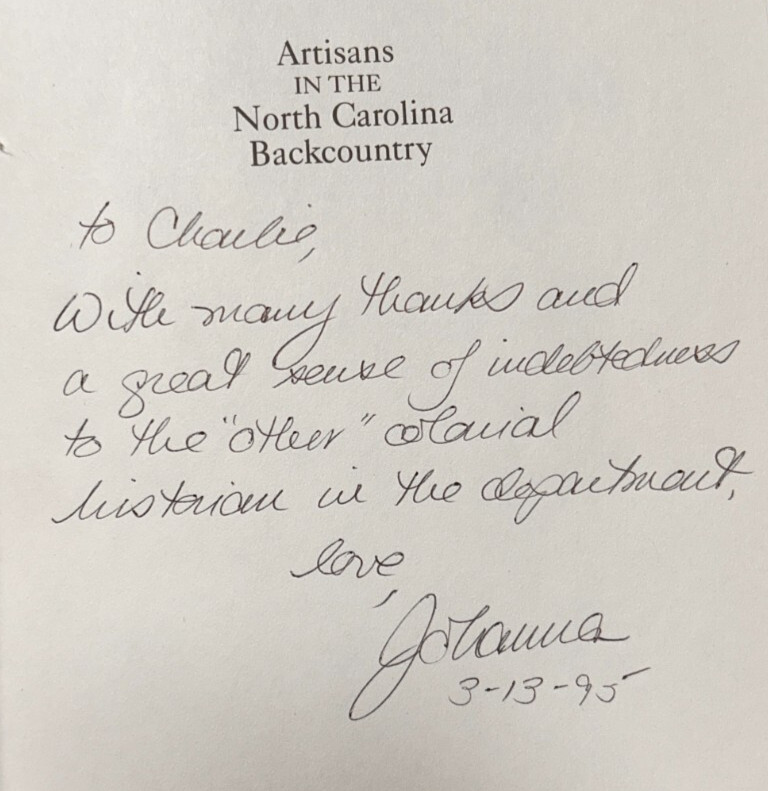 Artisans
IN THE
North Carolina
Backcountry
to Charlie,
With many thanks and
a great sense of indebtedness
to the "other" colonial
historian in the department,
love,
Johanna
3-13-95